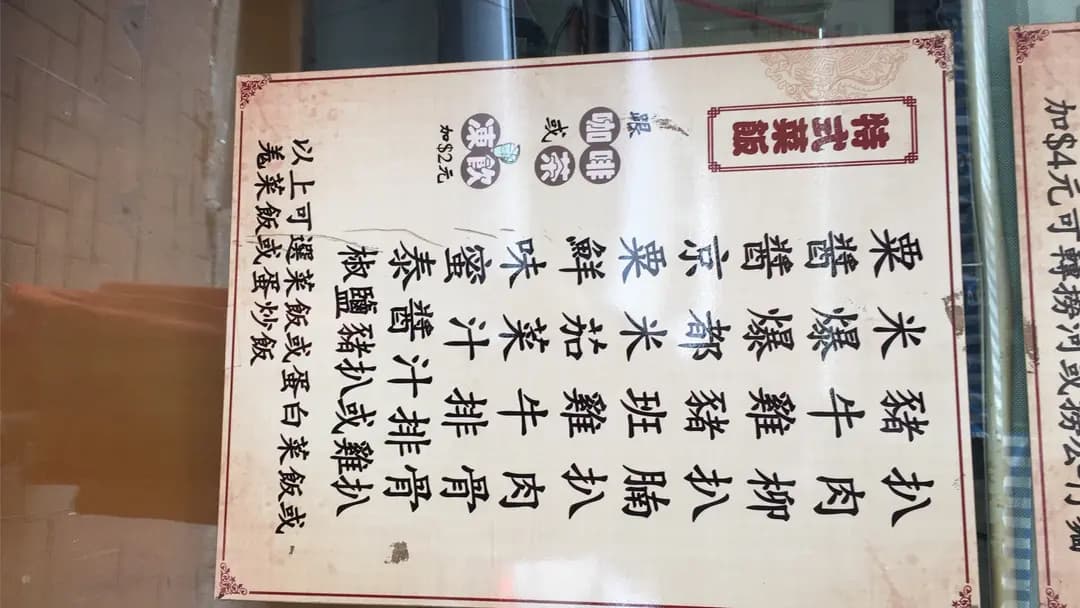 特式菜飯
跟
咖啡
或茶
凍飲
加$2元
粟米豬扒
醬爆牛肉
醬爆雞柳
京都豬扒
粟米班腩
鮮茄雞扒
味菜牛肉
蜜汁排骨
泰醬汁排骨
椒鹽豬扒或雞扒
以上可選菜飯或蛋白菜飯或
羗菜飯或蛋炒飯
加$4元可轉撈河或撈公仔麵